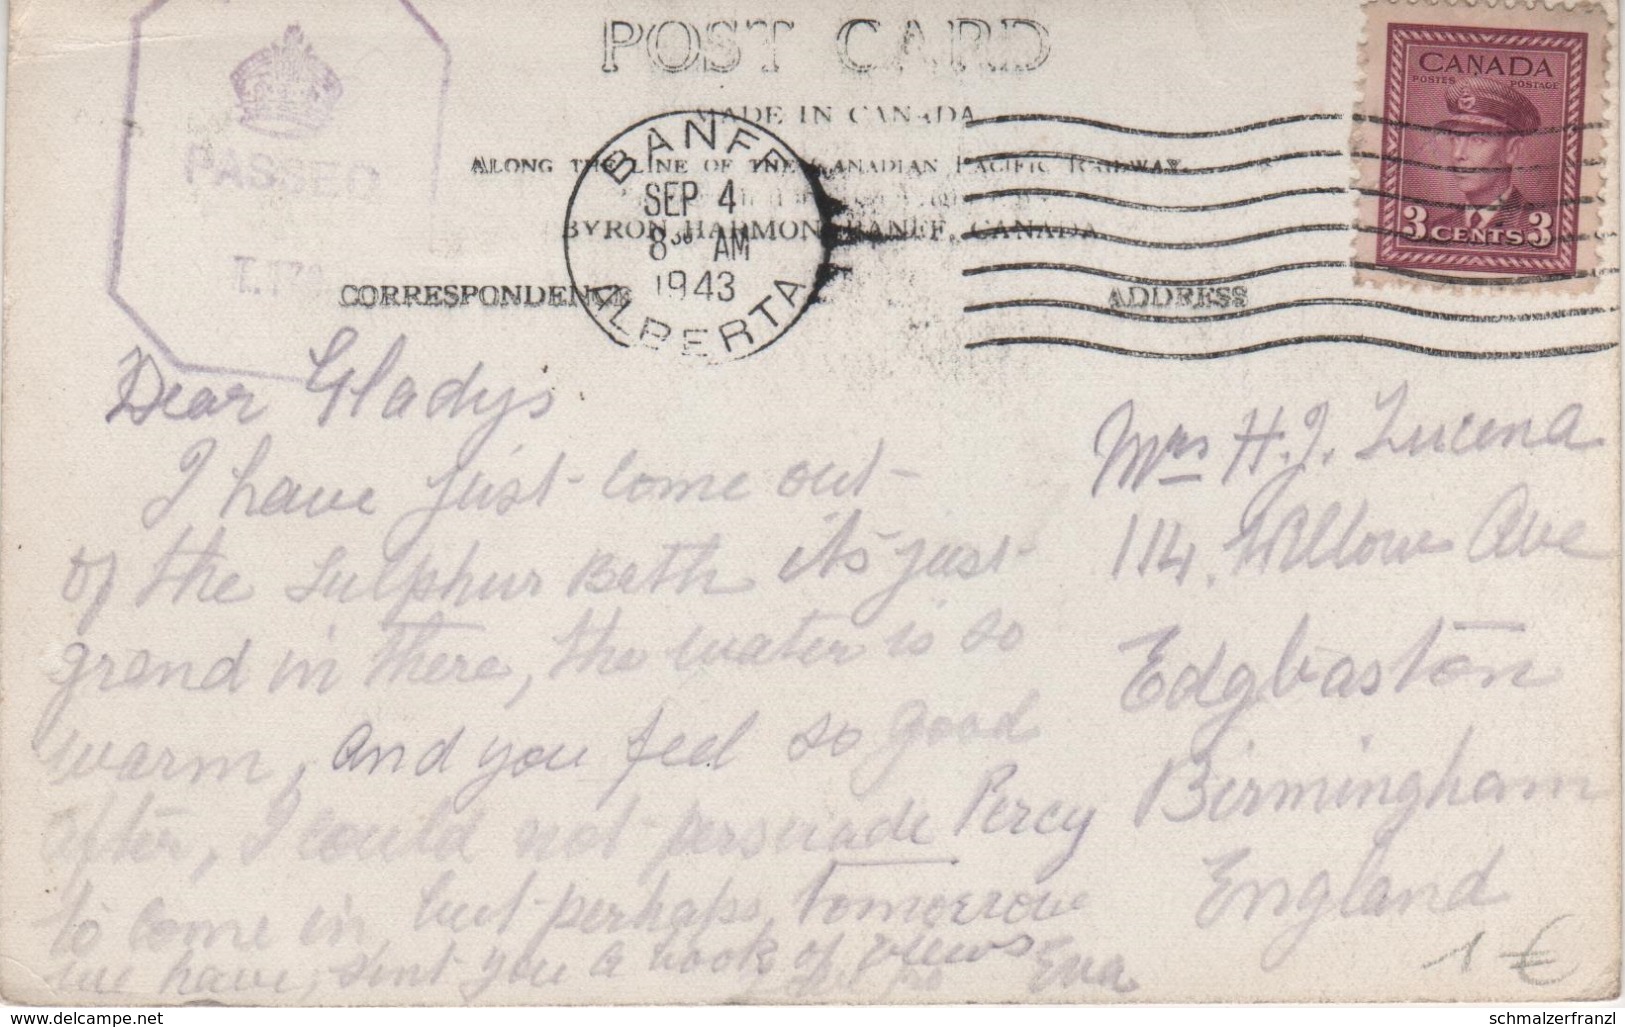 POST CARD
MADE IN CANADA
ALONG THE LINE OF THE CANADIAN PACIFIC RAILWAY.
BYRON HARMON, BANFF, CANADA
CORRESPONDENCE
ADDRESS
PASSED
BANFF
SEP 4
8 30 AM
1943
ALBERTA
CANADA
POSTES POSTAGE
3 CENTS 3
Dear Gladys
I have just come out
of the Sulphur Bath its just
grand in there, the water is so
warm, and you feel so good
after, I could not persuade Percy
to come in but perhaps tomorrow
we have, sent you a book of views
Eva
Mrs H. J. Lucena
114, Willow Ave
Edgbaston
Birmingham
England
1 €
www.delcampe.net
schmalzerfranzl